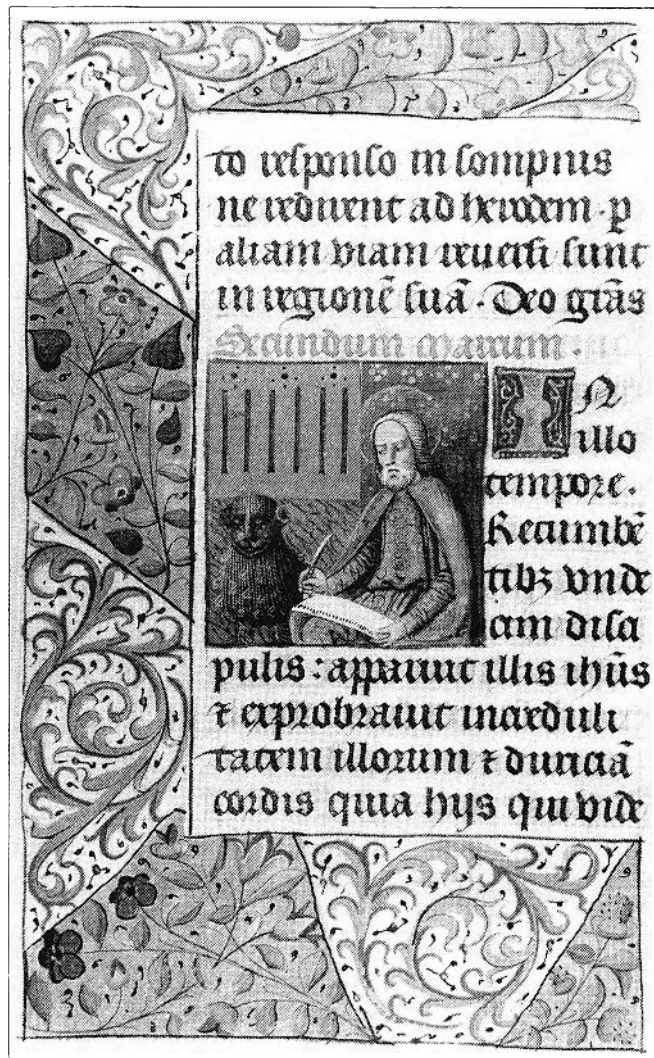 to responso in sompnis
ne redirent ad herodem · p
aliam viam reuersi sunt
in regionē suā · Deo grās
Secundum marcum ·
IN
illo
tempore ·
Recumbē
tibȝ vnde
cim disci
pulis : apparuit illis ihūs
⁊ exprobrauit increduli
tatem illorum ⁊ duriciā
cordis quia hijs qui vide